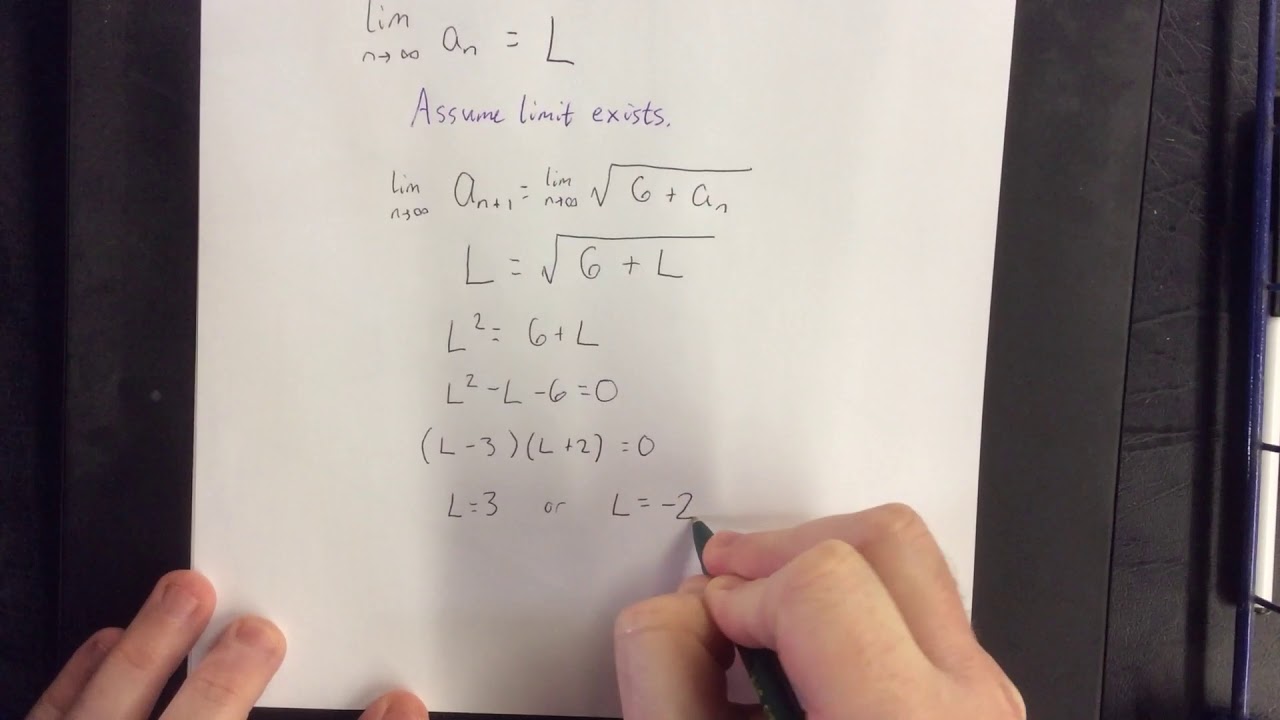 lim n→∞ aₙ = L
Assume limit exists.
lim n→∞ aₙ₊₁ = lim n→∞ √(6 + aₙ)
L = √(6 + L)
L² = 6 + L
L² - L - 6 = 0
(L - 3)(L + 2) = 0
L = 3 or L = -2